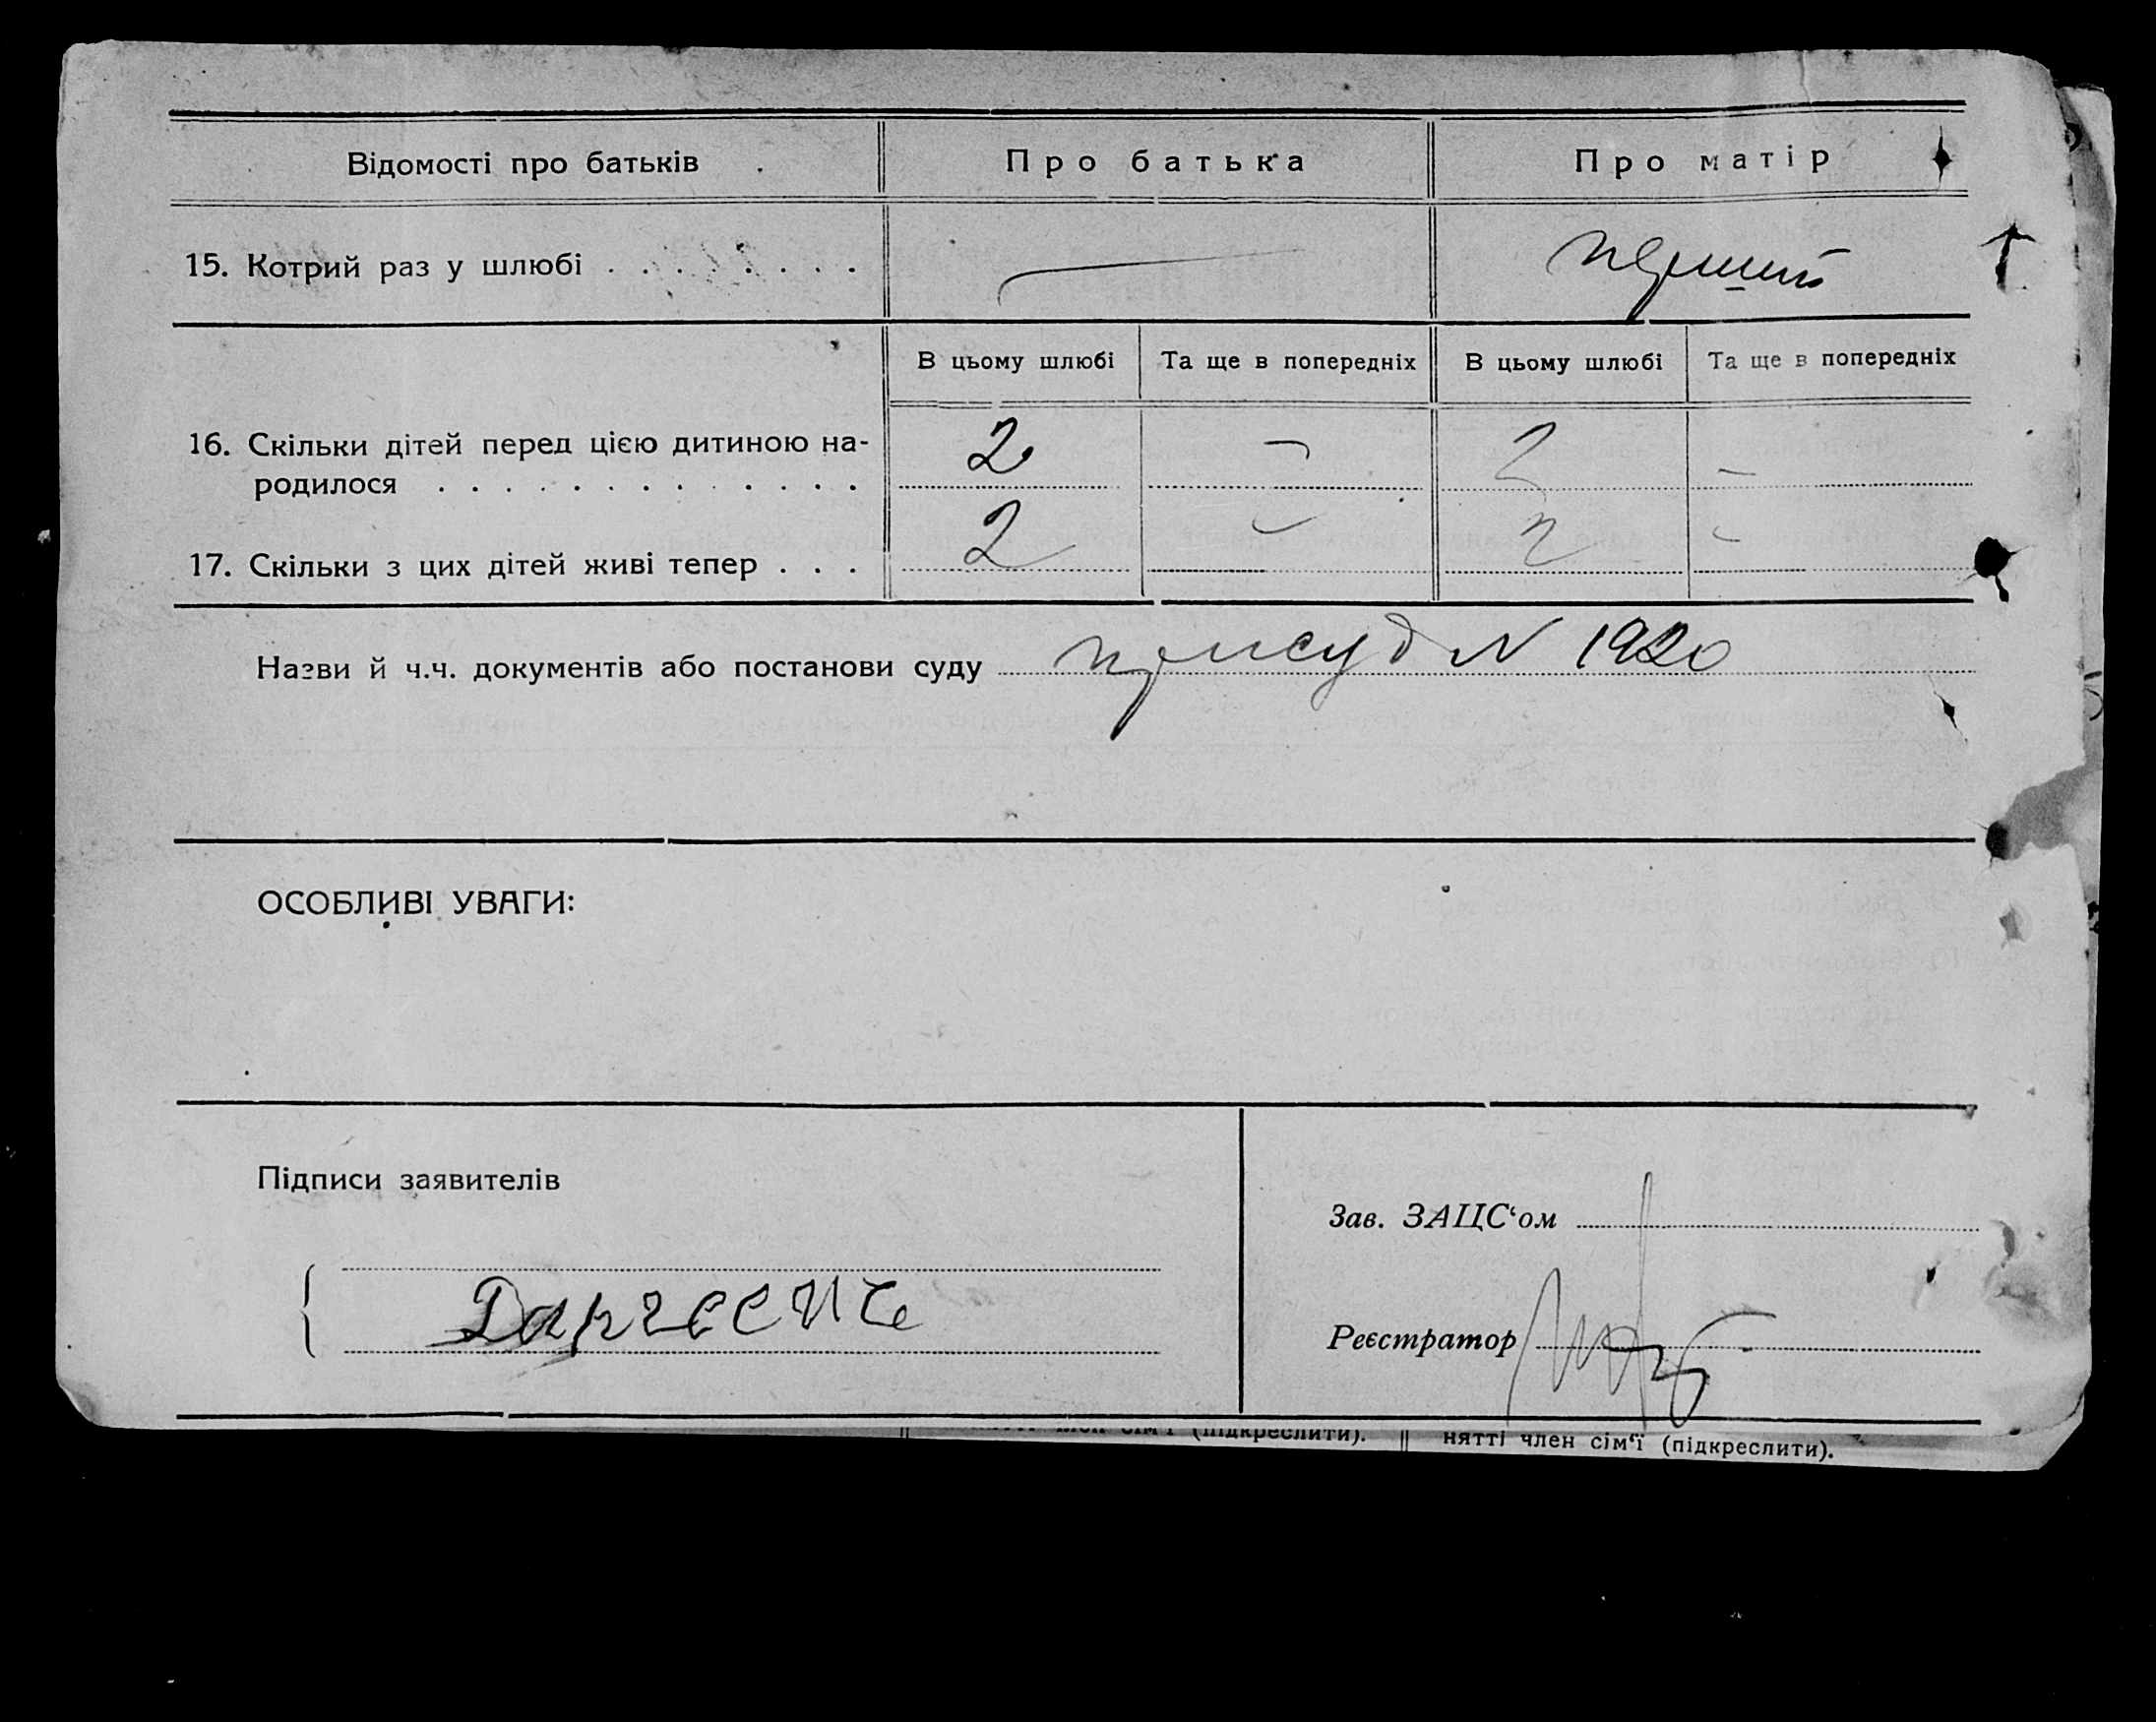 Відомості про батьків
Про батька
Про матір
15. Котрий раз у шлюбі . . . . . . . .
перший
В цьому шлюбі
Та ще в попередніх
В цьому шлюбі
Та ще в попередніх
16. Скільки дітей перед цією дитиною на-
родилося . . . . . . . . . . . . .
2
-
2
-
17. Скільки з цих дітей живі тепер . . .
2
-
2
-
Назви й ч.ч. документів або постанови суду
присуд N 1920
ОСОБЛИВІ УВАГИ:
Підписи заявителів
Зав. ЗАЦС‘ом
Реєстратор
сім‘ї (підкреслити).
нятті член сім‘ї (підкреслити).